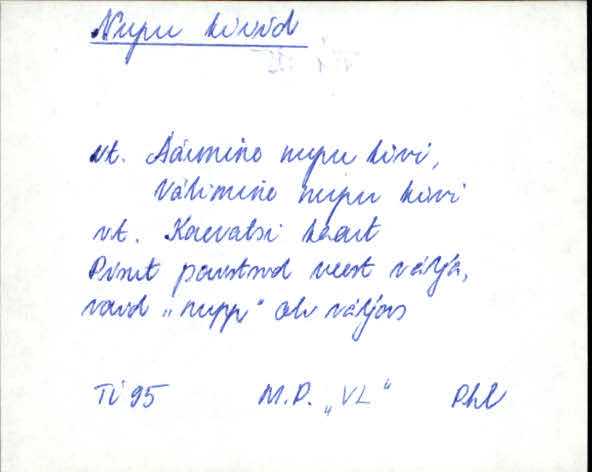 Nupu kivid
vt. Äärmine nupu kivi,
Välimine nupu kivi
vt. Kaevatsi kaart
Pisut paistsid veest välja,
vaid „nupp“ oli väljas
TÜ 95 M.P. „VL“ PhL